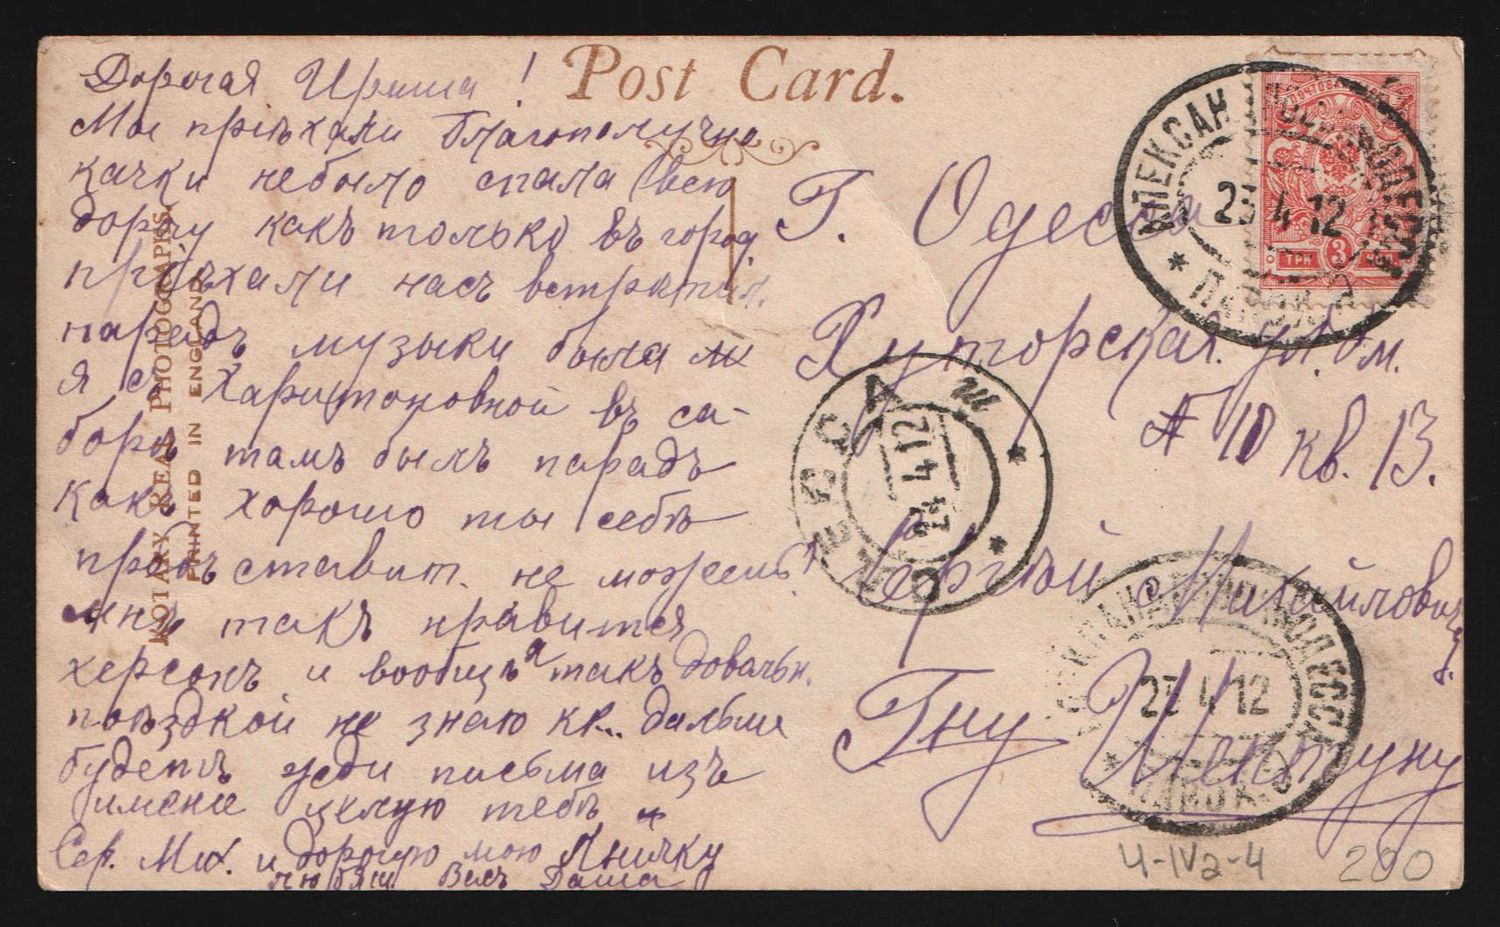 Post Card.
Дорогая Ириша!
Мы пріѣхали благополучно
качки небыло спала всю
дорогу какъ только въ город
пріѣхали насъ встрѣтил.
парадъ музыки была и
я съ Харитоновной въ са-
борѣ тамъ былъ парадъ
какъ хорошо ты себѣ
прѣдъставит. не можешь
мнѣ такъ нравится
херсонъ и вообще такъ довольн.
поѣздкой не знаю как дальше
будетъ жди письма изъ
имение целую тебѣ и
Сер. Мих. и дорогую мою
любящ Васъ Даша
Г. Одесса
Хуторская ул. д.
№ 10 кв. 13.
Сергѣй Михайлович
Гну Шептуну
ROTARY REAL PHOTOGRAPHS.
PRINTED IN ENGLAND
ПОЧТОВАЯ
3
ТРИ КОП
АЛЕКСАНДРОВСКЪ ОДЕССА
23 4 12
* ПАРОХ.
ОДЕССА
24 4 12
ОДЕССА
23 4 12
* ПАРОХ.
4-IVa-4
200